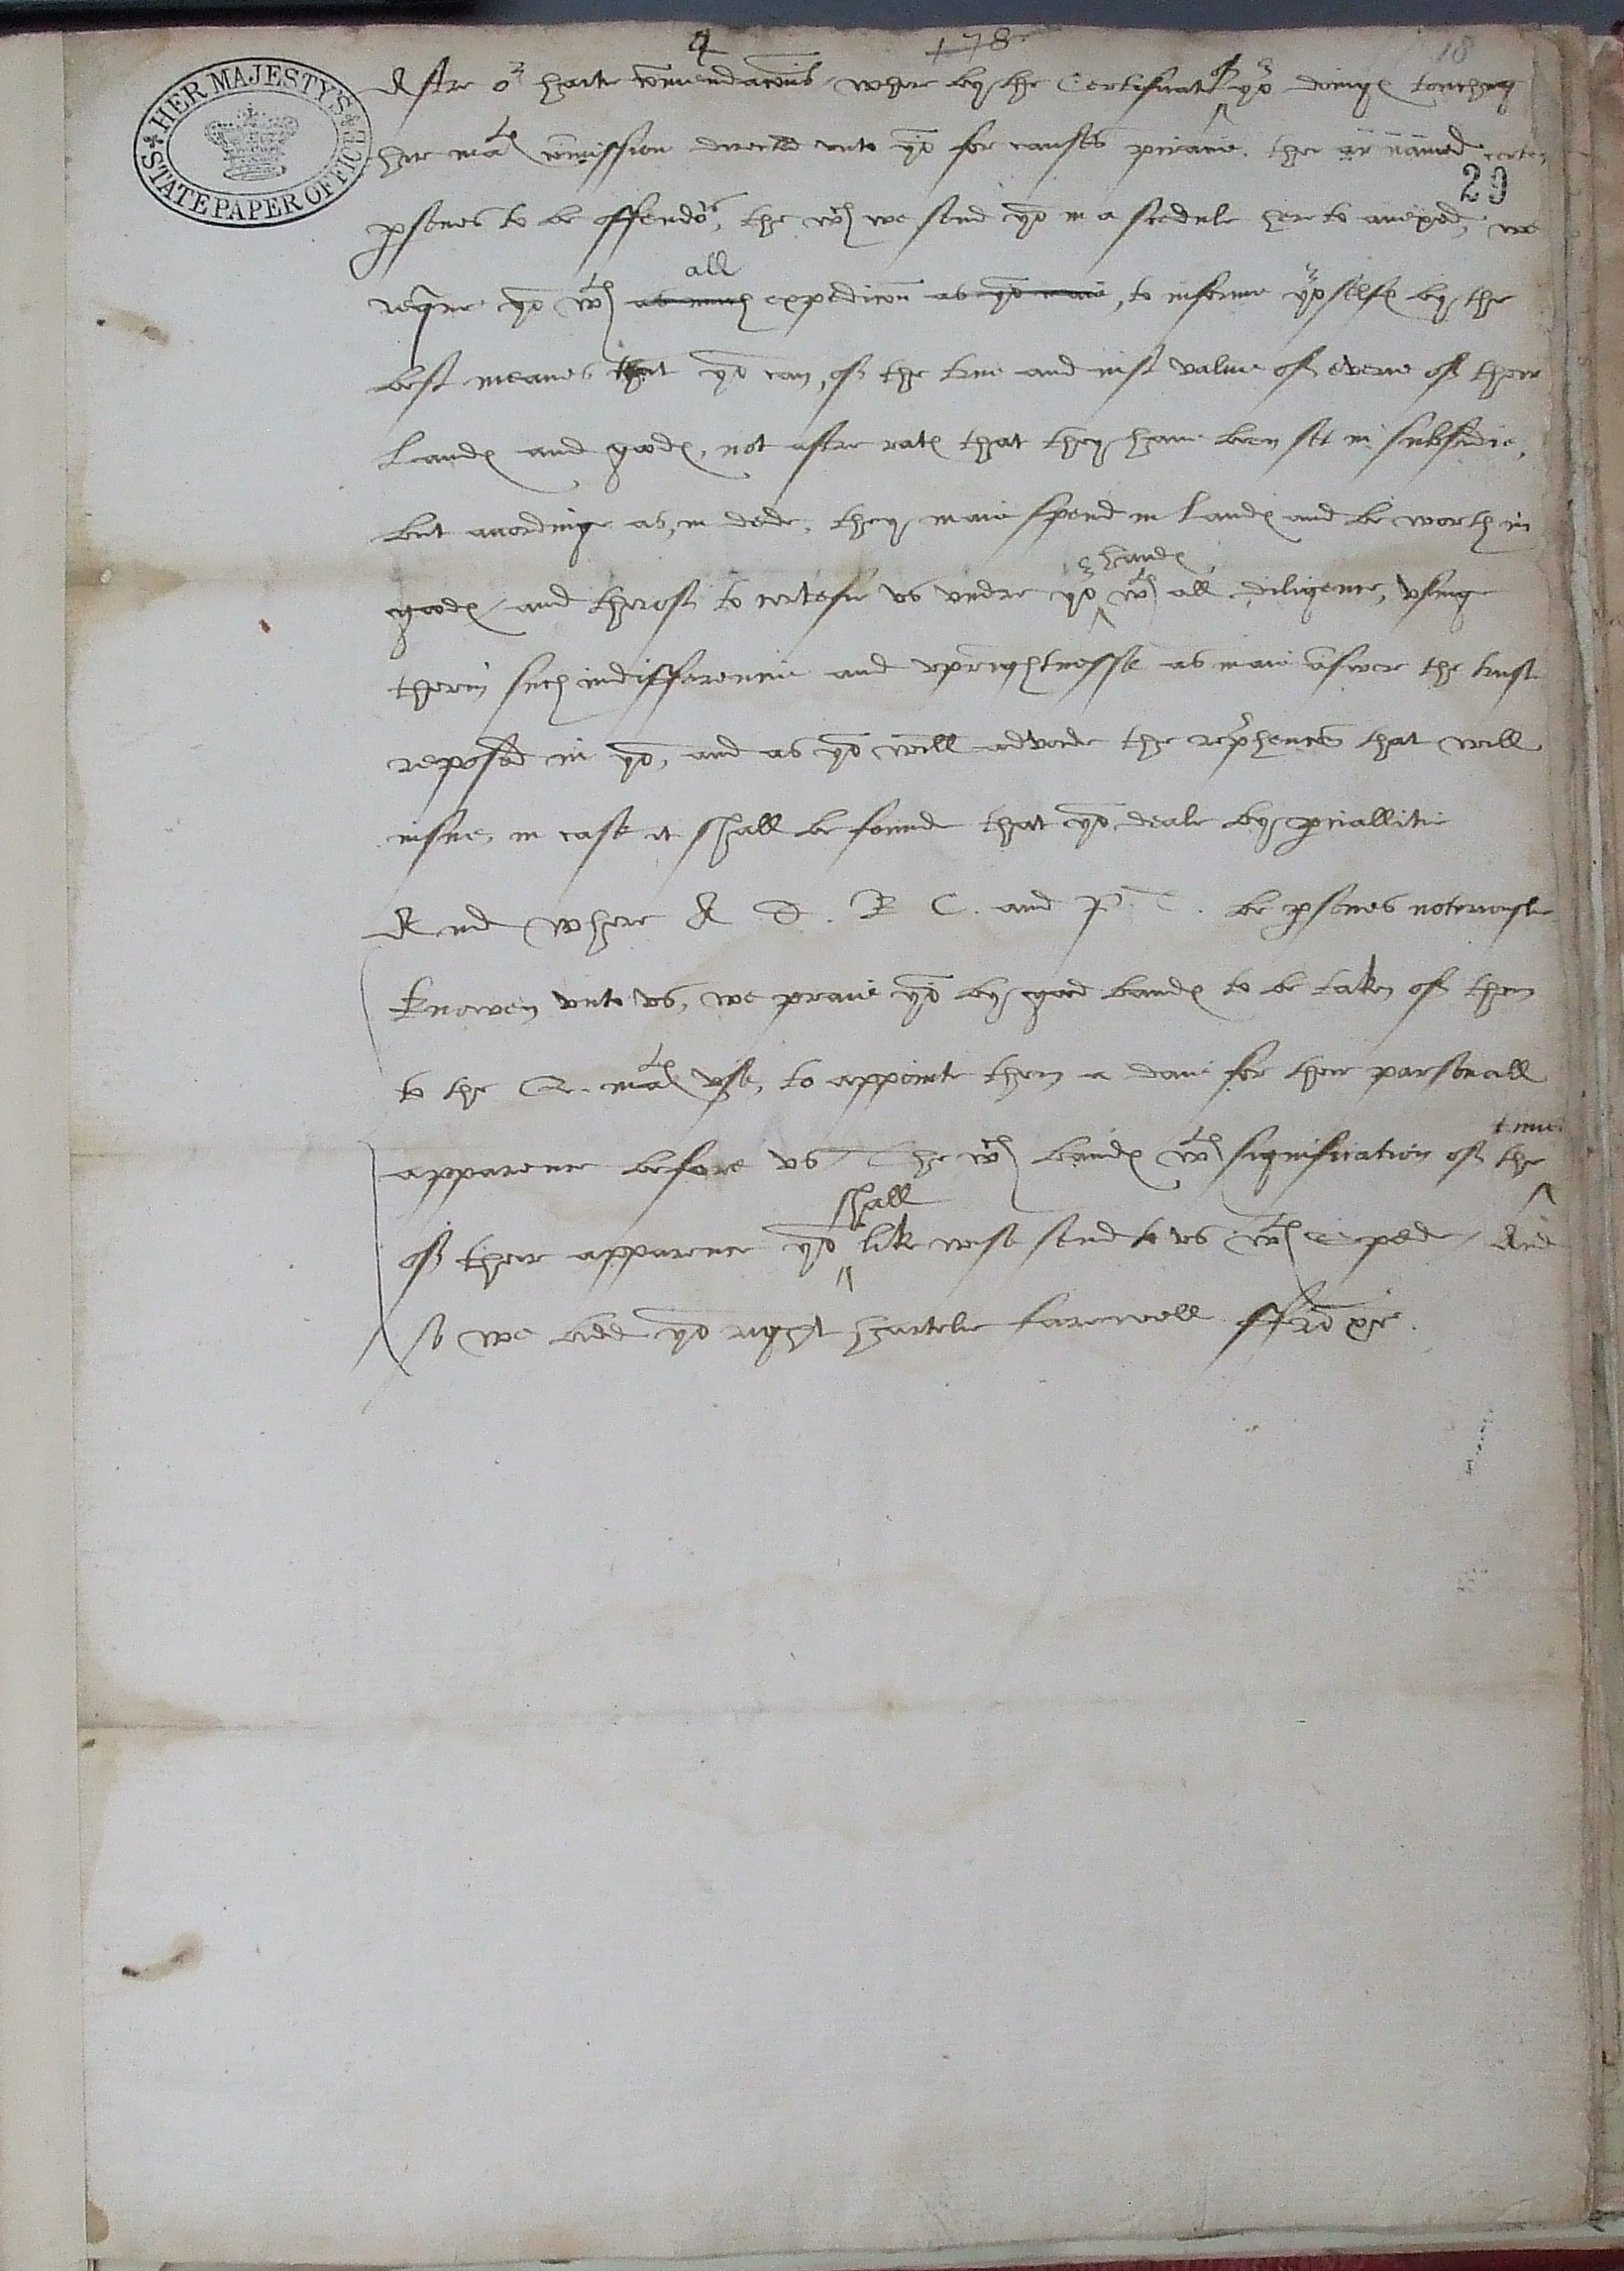 4 178 18
HER MAJESTY'S STATE PAPER OFFICE
Aftre or hartie comendacons where by the Certificat of yor doinges touching
her mates comission directed unto you for causes piracie, ther ar named certen
29
psones to be offendors, the wch we send you in a scedule here to anexed, we
require you wth as much all expedicon as you maie, to informe yorselfes by the
best meanes that you can, of the true and iust value of everie of their
landes and goodes, not aftre rates that they have ben set in subsidie,
but accordinge as, in dede, they maie spend in landes and be worth in
goodes and therof to certefie us undre yor handes wth all diligence, using
therin such indifferencie and uprightnesse as maie answer the trust
reposed in you, and as you will advoide the reprhences that will
insue, in case it shall be found that you deale by pciallitie
And where A D. B C. and P. C. be psones notoriouslie
knowen unto us, we praie you by good bandes to be taken of them
to the Q. mates use, to appointe them a daie for their parsonall
apparence before us The wch bandes wth signification of the time
of their apparence you shall like wise send to us wth expede And
so we bidd you right hartelie farewell ffro &c.